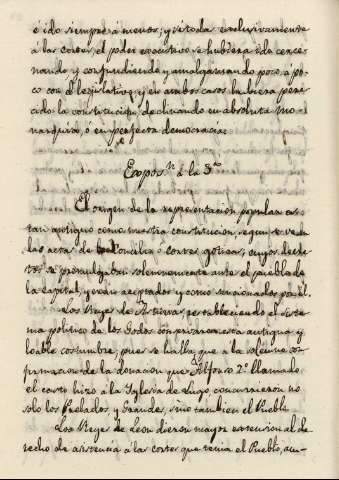 é ido siempre á menos; y si toda exclusivamente
á las cortes, el poder executivo se hubiera ido cerce-
nando y confundiendo y amalgamando poco á po-
co con el legislativo, y en ambos casos hubiera pere-
cido la constitucion, declinando en absoluta mo-
narquia, ó en perfecta democracia.
Expos.n á la 3.a
El origen de la representacion popular es
tan antiguo como nuestra constitucion, segun se ve en
las actas de los Concilios ó cortes goticas, cuyos decre-
tos se promulgaban solemnemente ante el pueblo de
la capital, y eran aceptados y como sancionados por él.
Los Reyes de Asturias, restableciendo el siste-
ma politico de los Godos conservaron esta antigua y
loable costumbre, pues se halla que á la solemne con-
firmacion de la donacion que Alfonso 2.º llamado
el casto hizo á la Iglesia de Lugo concurrieron no
solo los Prelados, y Grandes, sino tambien el Pueblo.
Los Reyes de Leon dieron mayor extension al de-
recho de asistencia á las cortes que tenia el Pueblo, au-